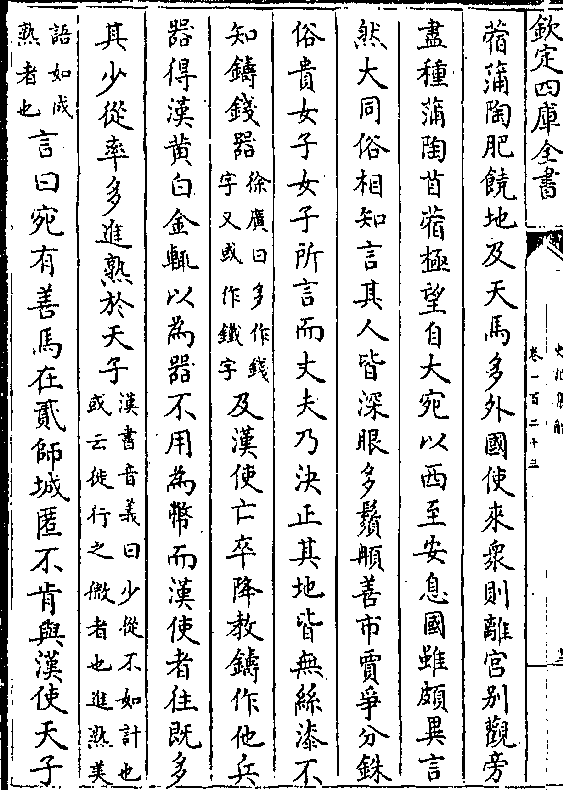 欽定四庫全書
史記集解
卷一百二十三
蓿蒲陶肥饒地及天馬多外國使來衆則離宮别觀旁
盡種蒲陶苜蓿極望自大宛以西至安息國雖頗異言
然大同俗相知言其人皆深眼多鬚䫇善市賈爭分銖
俗貴女子女子所言而丈夫乃決正其地皆無絲漆不
知鑄錢器徐廣曰多作錢字又或作鐵字及漢使亡卒降教鑄作他兵
器得漢黄白金輒以為器不用為幣而漢使者往既多
其少從率多進熟於天子漢書音義曰少從不如計也或云從行之微者也進熟美
語如成熟者也言曰宛有善馬在貳師城匿不肯與漢使天子